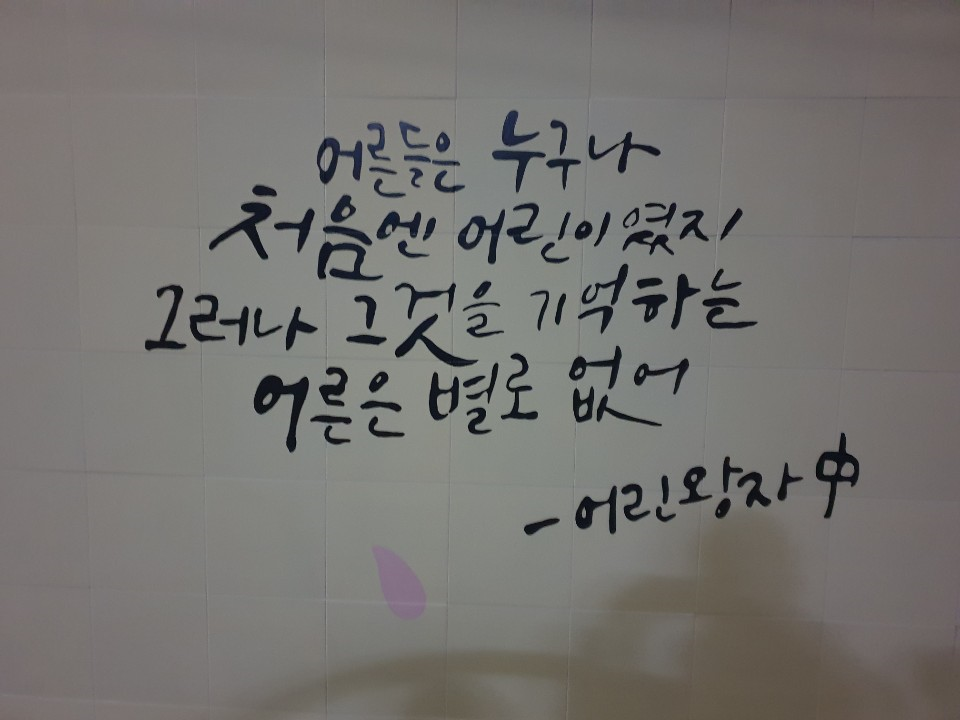 어른들은 누구나
처음엔 어린이였지
그러나 그것을 기억하는
어른은 별로 없어
- 어린왕자 中